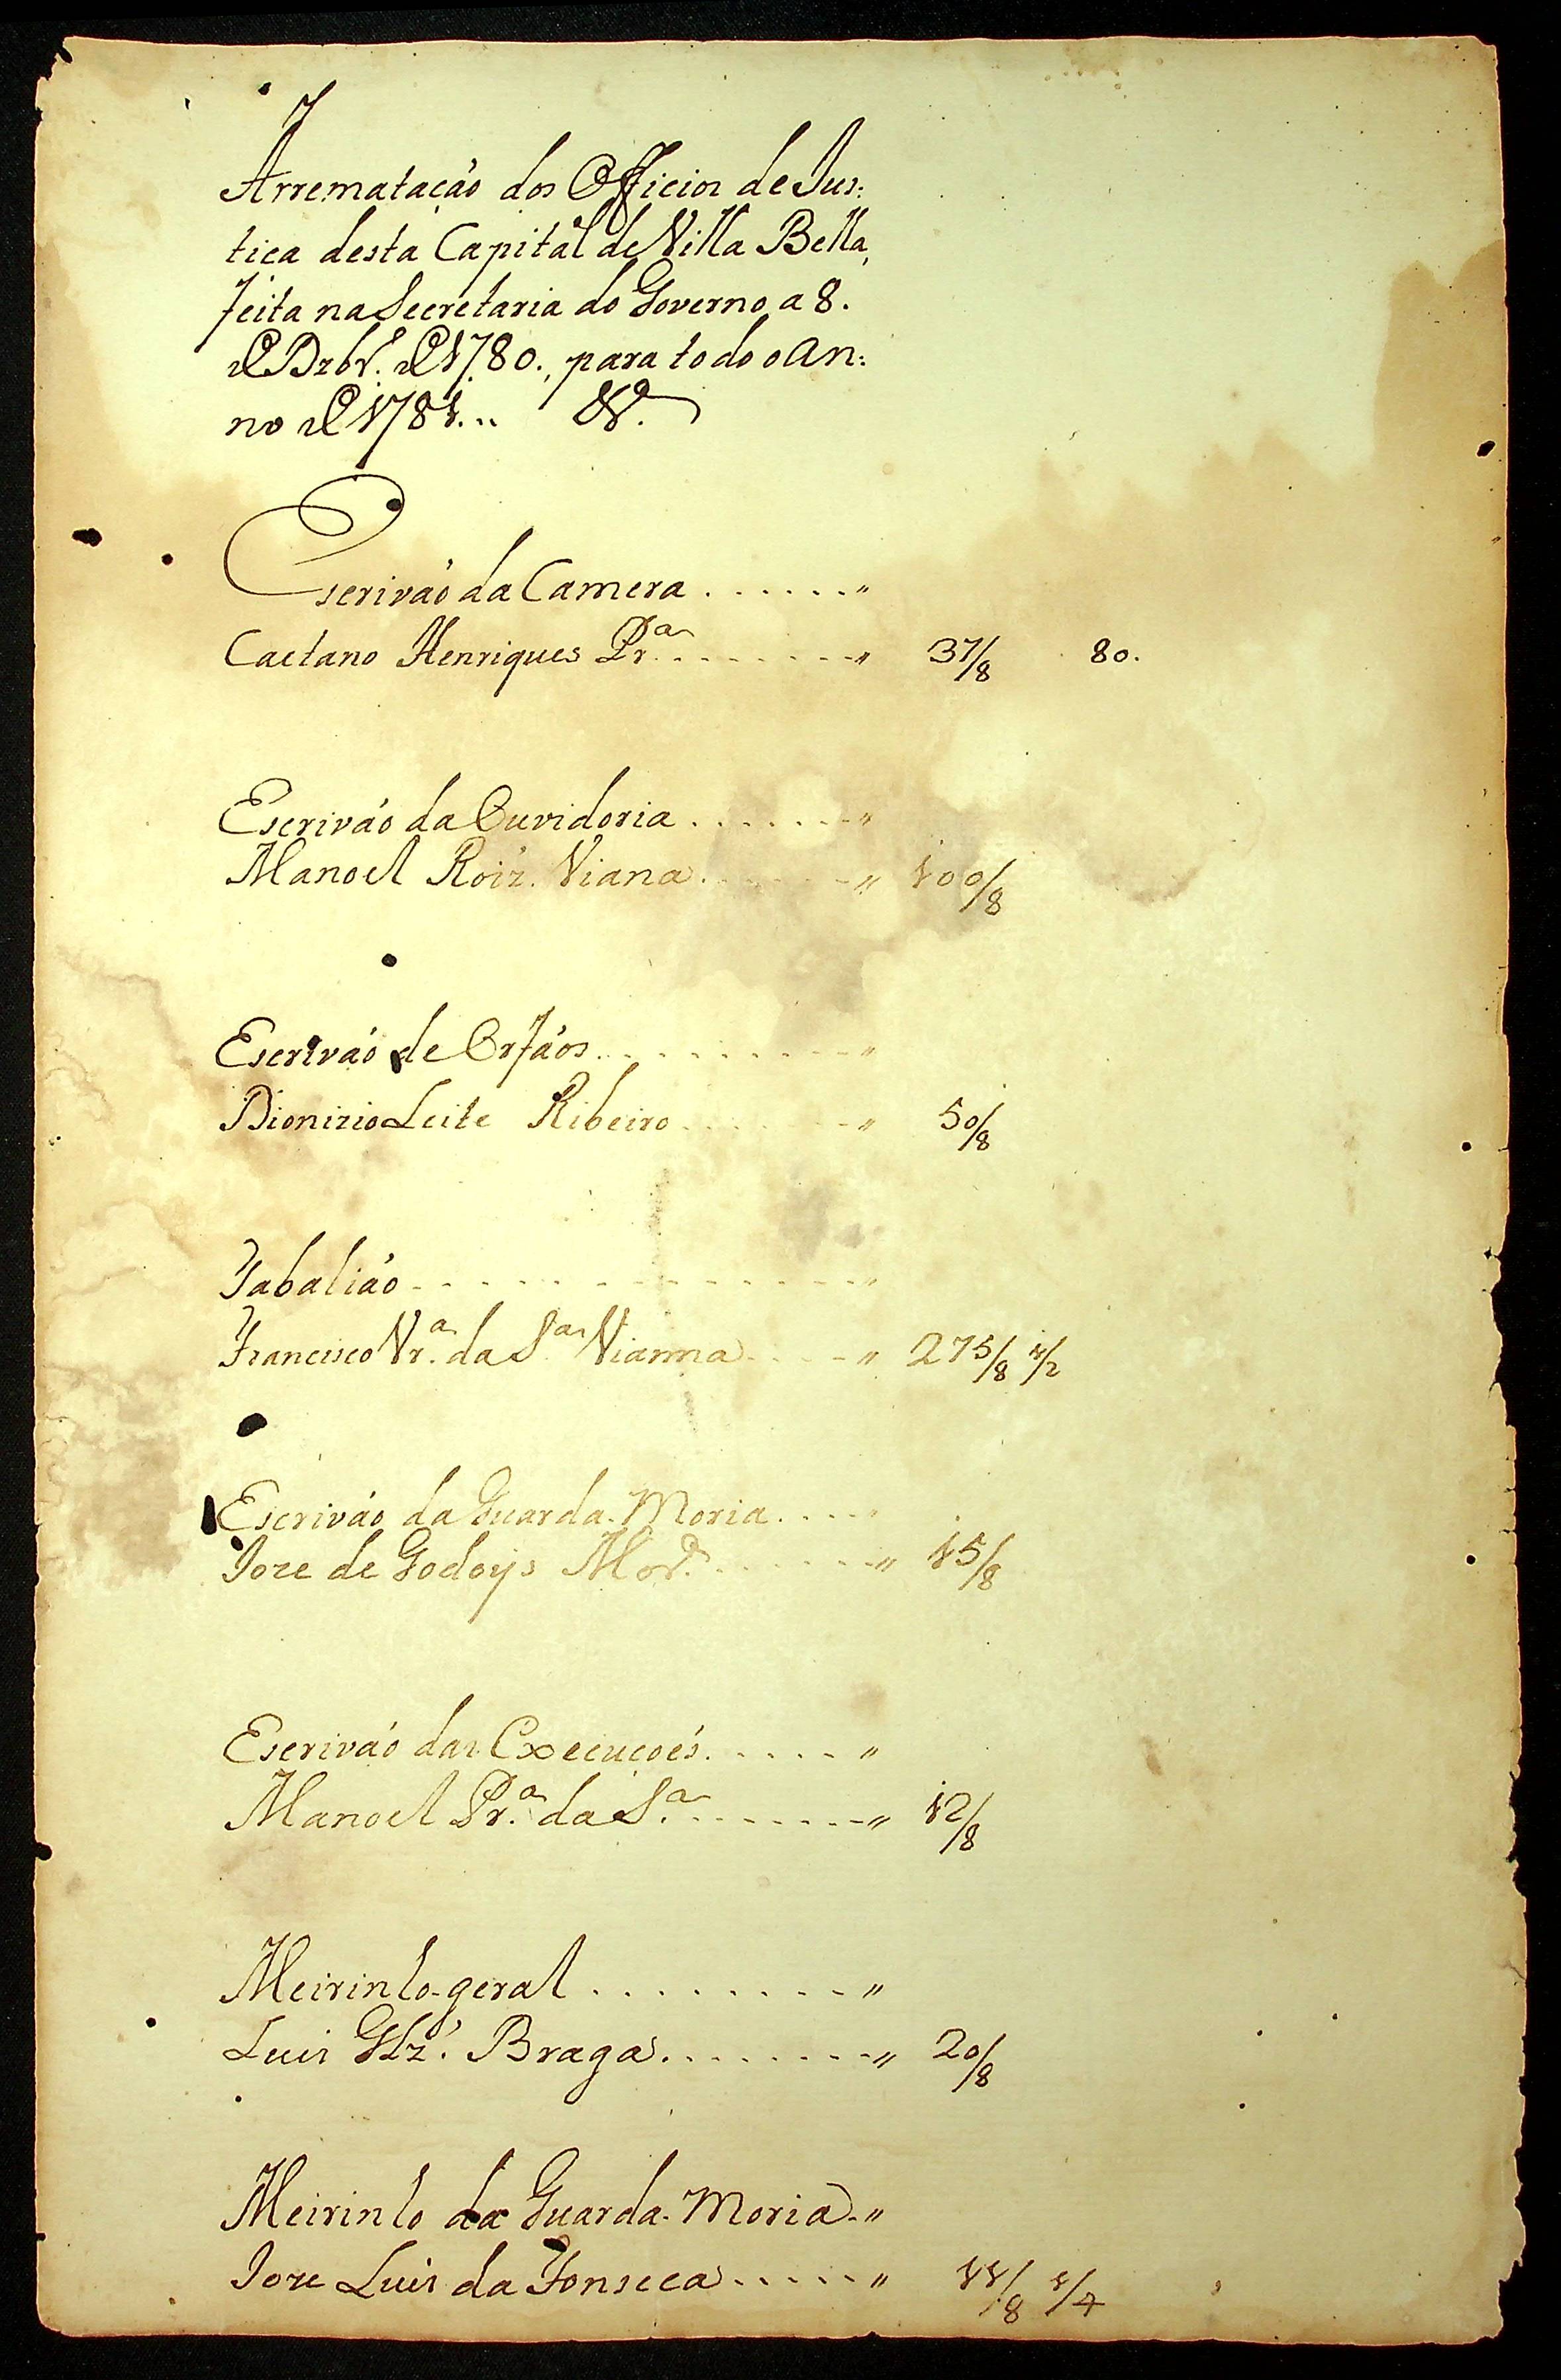 Arremataçáo dos Officios de Jus:
tiça desta Capital de Villa Bella,
feita na Secretaria do Governo a 8.
de Dzbr.º de 1780., para todo o An:
no de 1781...
Escriváo da Camera . . . . . . "
Caetano Henriques Pr.ª . . . . . . . " 37/8 80.
Escriváo da Ouvidoria . . . . . . . "
Manoel Roiz. Viana . . . . . . " 100/8
Escriváo de Orfáos . . . . . . . . . "
Dionizio Leite Ribeiro . . . . . . . " 50/8
Tabaliáo - - - - - - - - - - - - - "
Francisco Vr.ª da S.ª Vianna . . . . " 275/8 1/2
Escriváo da Guarda-Moria . . . . "
Joze de Godoys Mor.ª . . . . . . . " 15/8
Escriváo das Execuçoés . . . . . "
Manoel Pr.ª da S.ª . . . . . . . " 12/8
Meirinho-geral . . . . . . . . . "
Luis Glz.' Braga . . . . . . . . " 20/8
Meirinho da Guarda-Moria - "
Joze Luis da Fonseca . . . . . " 11/8 1/4